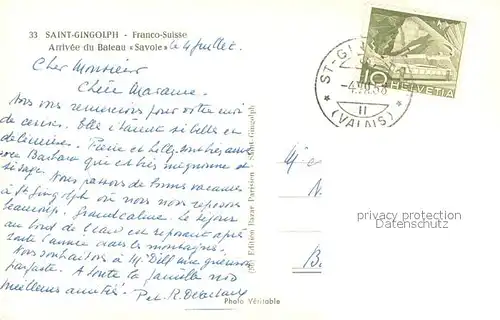 33 SAINT-GINGOLPH - Franco-Suisse
Arrivée du Bateau «Savoie»
le 4 juillet.
Cher Monsieur
Chère Madame.
Nous vous remercions pour votre
de cerises. Elles étaient si belles et
délicieuses. Pierre et Lilly
avec Barbara qui est très mignonne et
si sage. Nous passons de bonnes vacances
à St Gingolph où nous nous reposons
beaucoup. Grand calme. Le séjour
au bord de l'eau en reposant après
toute l'année dans les montagnes.
Nous souhaitons à M. Dill une guérison
parfaite. A toute la famille nos
meilleures amitiés. P. et R.
Edition Jaeger Parisien St-Gingolph
Photo Véritable
ST-GI
-4.VII.58
II
(VALAIS)
10 HELVETIA
M
N
B
privacy protection
Datenschutz